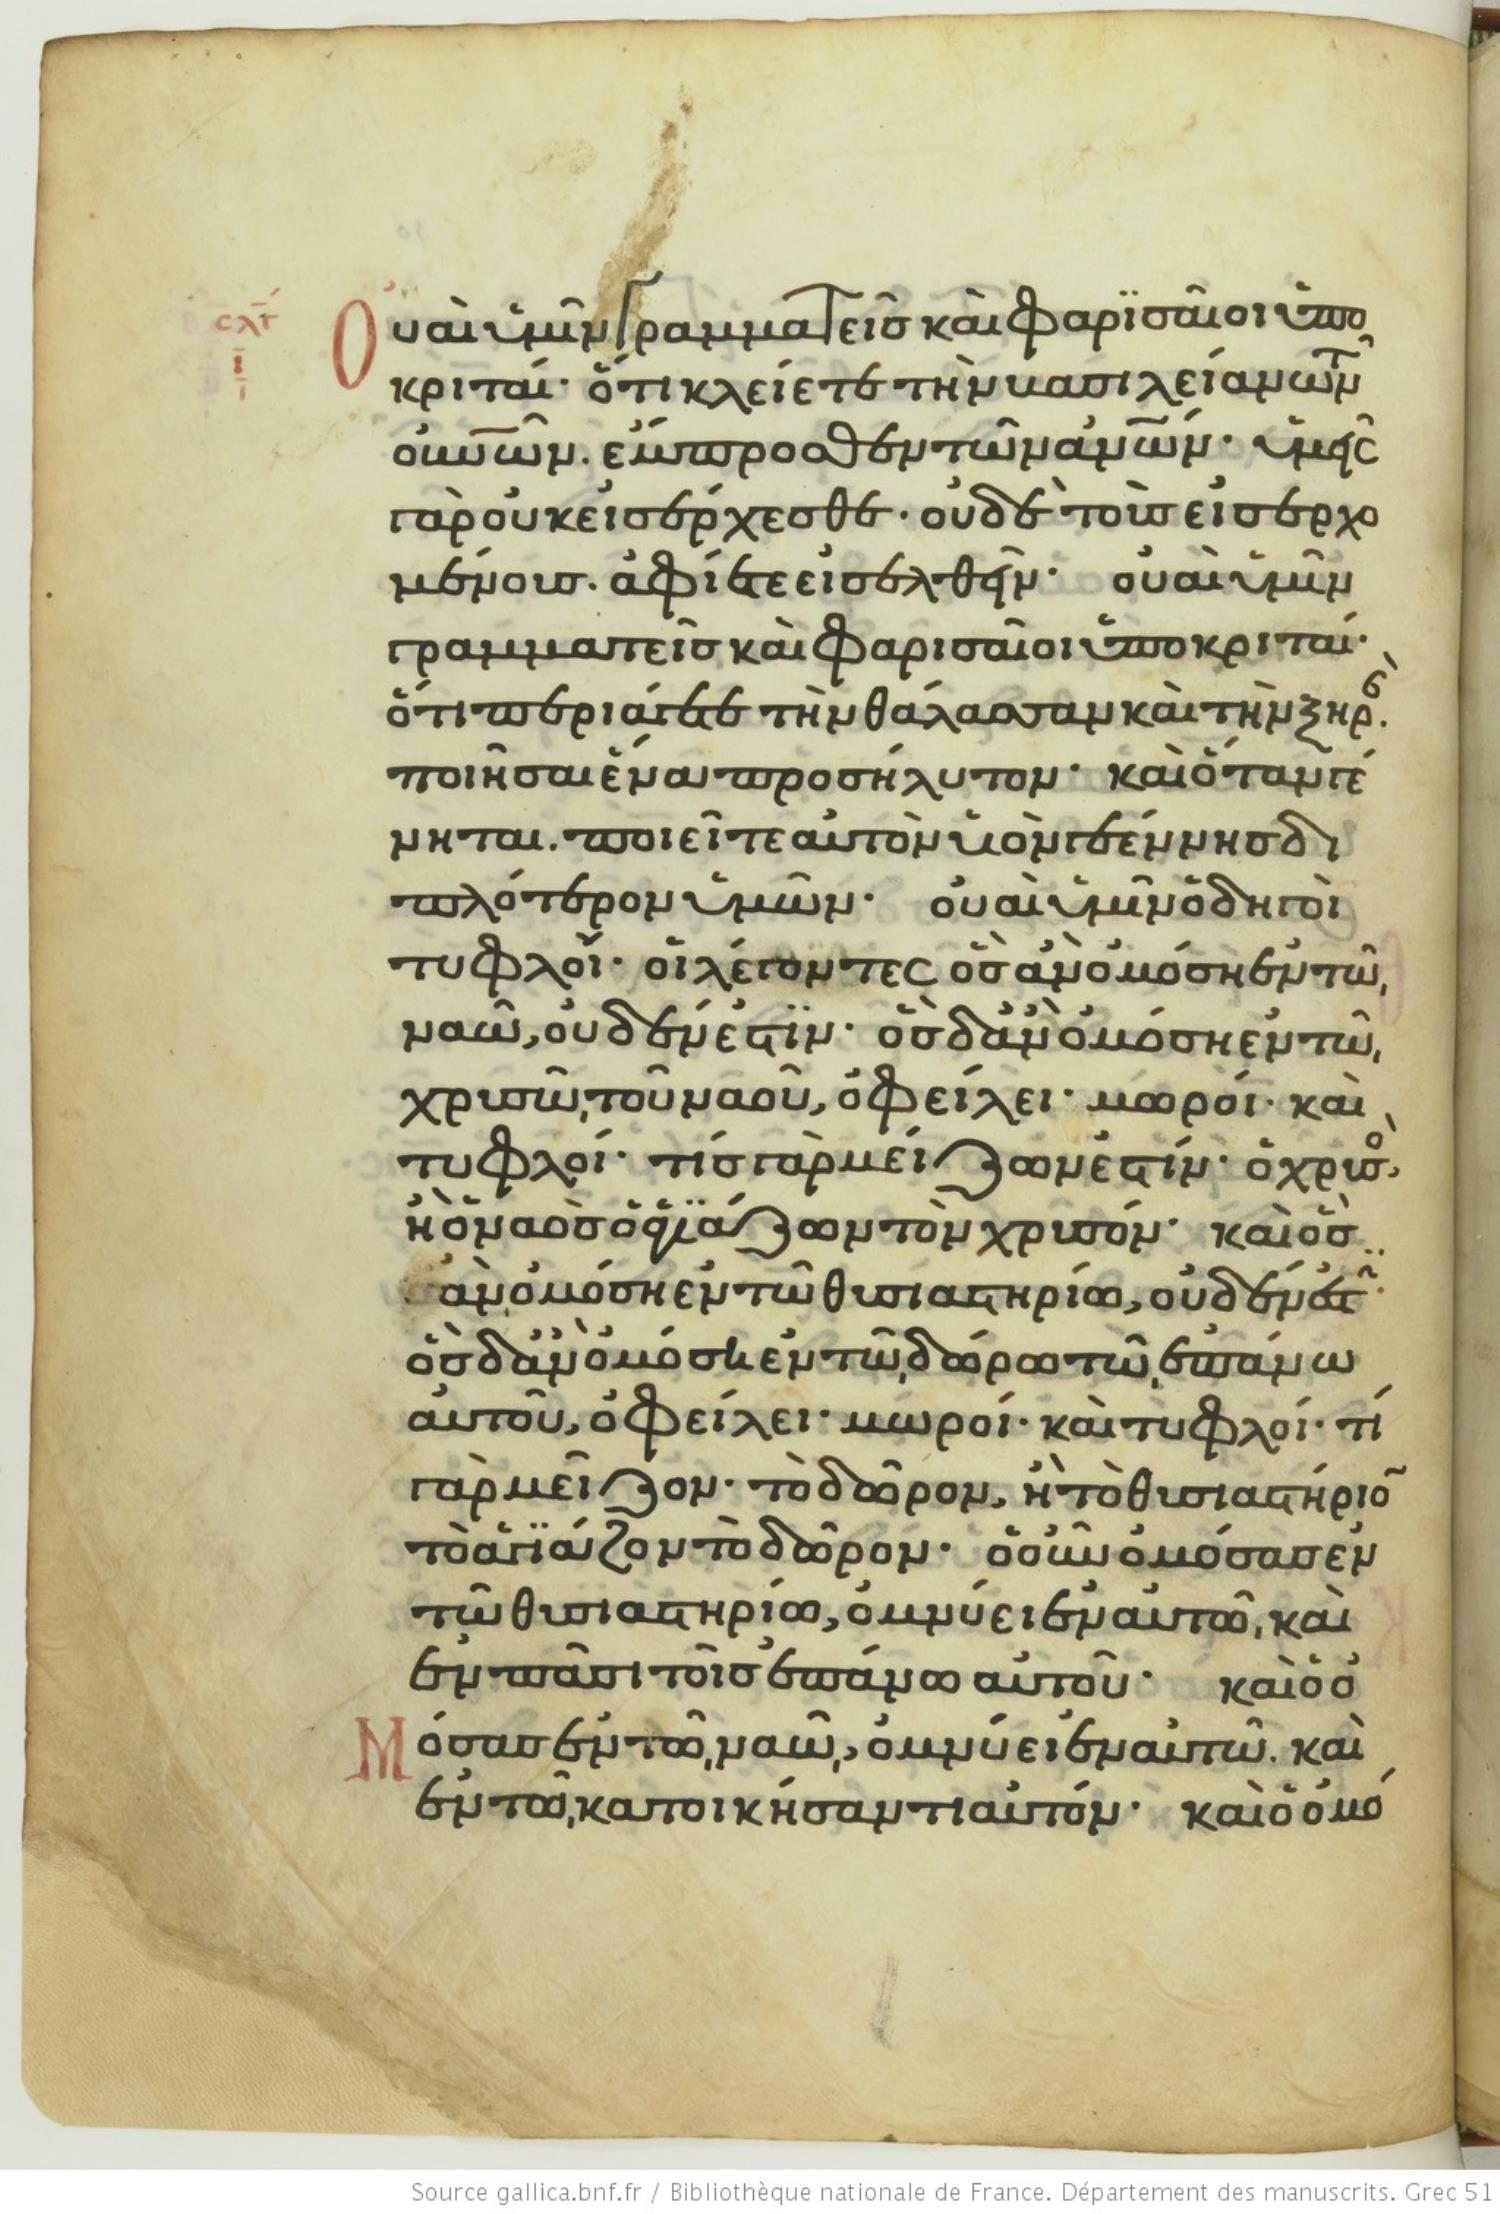 σλγ
ι
ι
Οὐαὶ ὑμῖν γραμματεῖς καὶ φαρϊσαῖοι ὑπο
κριταί· ὅτι κλείετε τὴν βασιλείαν τῶν
οὐνῶν. ἔμπροσθεν τῶν ἀνῶν· ὑμεῖς
γὰρ οὐκ εἰσέρχεσθε· οὐδὲ τοὺς εἰσερχο
μένους. ἀφίετε εἰσελθεῖν· οὐαὶ ὑμῖν
γραμματεῖς καὶ φαρισαῖοι ὑποκριταί·
ὅτι περιάγετε τὴν θάλασσαν καὶ τὴν ξηρ.
ποιῆσαι ἕνα προσήλυτον· καὶ ὅταν γέ
νηται. ποιεῖτε αὐτὸν υἱὸν γεέννης δι
πλότερον ὑμῶν· οὐαὶ ὑμῖν ὁδηγοὶ
τυφλοὶ· οἱ λέγοντες ὃς ἂν ὀμόση ἐν τῶ,
ναῶ, οὐδέν ἐστϊν· ὃς δ ἂν ὀμόση ἐν τῶ,
χρυσῶ, τοῦ ναοῦ, ὀφείλει· μωροί· καὶ
τυφλοί· τίς γὰρ μείζων ἐστίν· ὁ χρυσὸ,
ἢ ὁ ναὸς ὁ ἁγϊάζων τὸν χρυσόν· καὶ ὃς
ἂν ὀμόση ἐν τῶ θυσιαστηρίω, οὐδέν ἐστ·
ὃς δ ἂν ὀμόση ἐν τῶ, δώρω τῶ, ἐπάνω
αὐτοῦ, ὀφείλει· μωροί· καὶ τυφλοί· τί
γὰρ μεῖζον· τὸ δῶρον, ἢ τὸ θυσιαστήριο
τὸ ἁγϊάζον τὸ δῶρον· ὁ οὖν ὀμόσας ἐν
τῶ θυσιαστηρίω, ὀμνύει ἐν αὐτῶ, καὶ
ἐν πᾶσι τοῖς ἐπάνω αὐτοῦ· καὶ ὁ ὀ
Μόσας ἐν τῶ, ναῶ, ὀμνύει ἐν αὐτῶ. καὶ
ἐν τῶ, κατοικήσαντι αὐτόν· καὶ ὁ ὀμό
Source gallica.bnf.fr / Bibliothèque nationale de France. Département des manuscrits. Grec 51